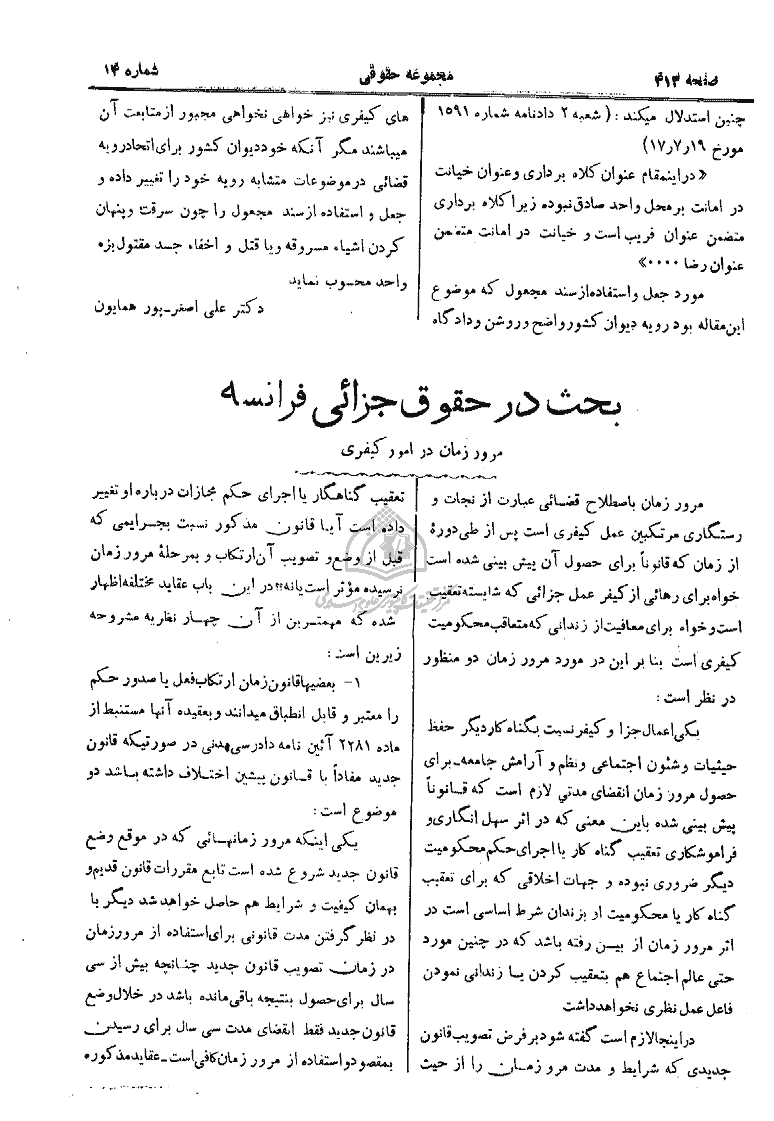 صفحه ۴۱۳
مجموعه حقوقی
شماره ۱۴
چنین استدلال میکند : ( شعبه ۲ دادنامه شماره ۱۵۹۱
مورخ ۱۷٫۷٫۱۹)
« دراینمقام عنوان کلاه برداری وعنوان خیانت
در امانت برمحل واحد صادق نبوده زیرا کلاه برداری
متضمن عنوان فریب است و خیانت در امانت متضمن
عنوان رضا ۰۰۰۰»
مورد جعل واستفاده از سند مجعول که موضوع
این مقاله بود رویه دیوان کشور واضح وروشن ودادگاه
های کیفری نیز خواهی نخواهی مجبور از متابعت آن
میباشند مگر آنکه خود دیوان کشور برای اتحاد رویه
قضائی درموضوعات متشابه رویه خود را تغییر داده و
جعل و استفاده از سند مجعول را چون سرقت وپنهان
کردن اشیاء مسروقه ویا قتل و اخفاء جسد مقتول بزه
واحد محسوب نماید
دکتر علی اصغر ـ پور همایون
بحث در حقوق جزائی فرانسه
مرور زمان در امور کیفری
مرور زمان باصطلاح قضائی عبارت از نجات و
رستگاری مرتکبین عمل کیفری است پس از طی دورهٔ
از زمان که قانوناً برای حصول آن پیش بینی شده است
خواه برای رهائی از کیفر عمل جزائی که شایسته تعقیب
است وخواه برای معافیت از زندانی که متعاقب محکومیت
کیفری است بنا بر این در مورد مرور زمان دو منظور
در نظر است :
یکی اعمال جزا و کیفر نسبت بگناه کار دیگر حفظ
حیثیات وشئون اجتماعی ونظم و آرامش جامعه ـ برای
حصول مرور زمان انقضای مدتی لازم است که قانوناً
پیش بینی شده باین معنی که در اثر سهل انگاری و
فراموشکاری تعقیب گناه کار یا اجرای حکم محکومیت
دیگر ضروری نبوده و جهات اخلاقی که برای تعقیب
گناه کار یا محکومیت او بزندان شرط اساسی است در
اثر مرور زمان از بین رفته باشد که در چنین مورد
حتی عالم اجتماع هم بتعقیب کردن یا زندانی نمودن
فاعل عمل نظری نخواهد داشت
دراینجا لازم است گفته شود برفرض تصویب قانون
جدیدی که شرایط و مدت مرو زمان را از حیث
تعقیب گناهکار یا اجرای حکم مجازات درباره او تغییر
داده است آیا قانون مذکور نسبت بجرایمی که
قبل از وضع و تصویب آن ارتکاب و بمرحلهٔ مرور زمان
نرسیده مؤثر است یا نه؟؟ در این باب عقاید مختلفه اظهار
شده که مهمترین از آن چهار نظریه مشروحه
زیرین است :
۱- بعضیها قانون زمان ارتکاب فعل یا صدور حکم
را معتبر و قابل انطباق میدانند وبعقیده آنها مستنبط از
ماده ۲۲۸۱ آئین نامه دادرسی مدنی در صورتیکه قانون
جدید مفاداً با قانون پیشین اختلاف داشته باشد دو
موضوع است :
یکی اینکه مرور زمانهائی که در موقع وضع
قانون جدید شروع شده است تابع مقررات قانون قدیم و
بهمان کیفیت و شرایط هم حاصل خواهد شد دیگر با
در نظر گرفتن مدت قانونی برای استفاده از مرور زمان
در زمان تصویب قانون جدید چنانچه بیش از سی
سال برای حصول بنتیجه باقی مانده باشد در خلال وضع
قانون جدید فقط انقضای مدت سی سال برای رسیدن
بمقصود و استفاده از مرور زمان کافی است ـ عقاید مذکوره